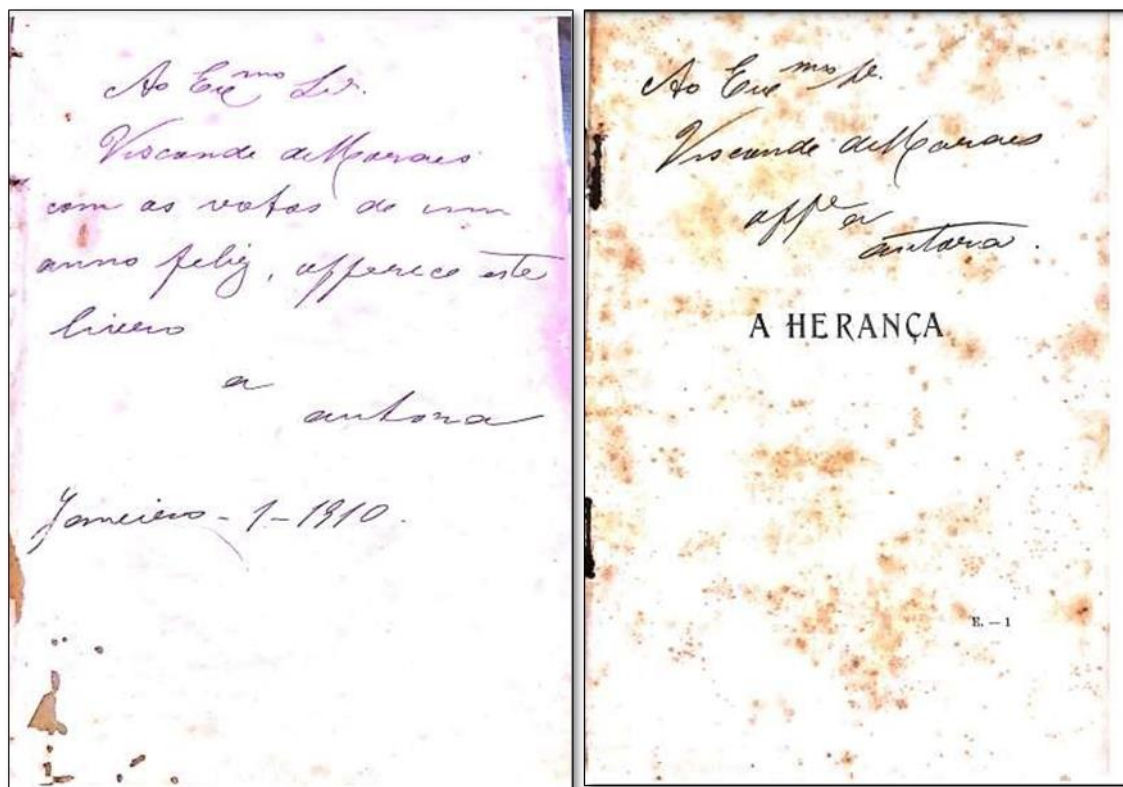 Ao Exmo Snr.
Visconde de Moraes
com os votos de um
anno feliz, offerece este
livro
a
autora
Janeiro - 1 - 1910.
Ao Exmo Sr.
Visconde de Moraes
offe a
autora.
A HERANÇA
E. — 1